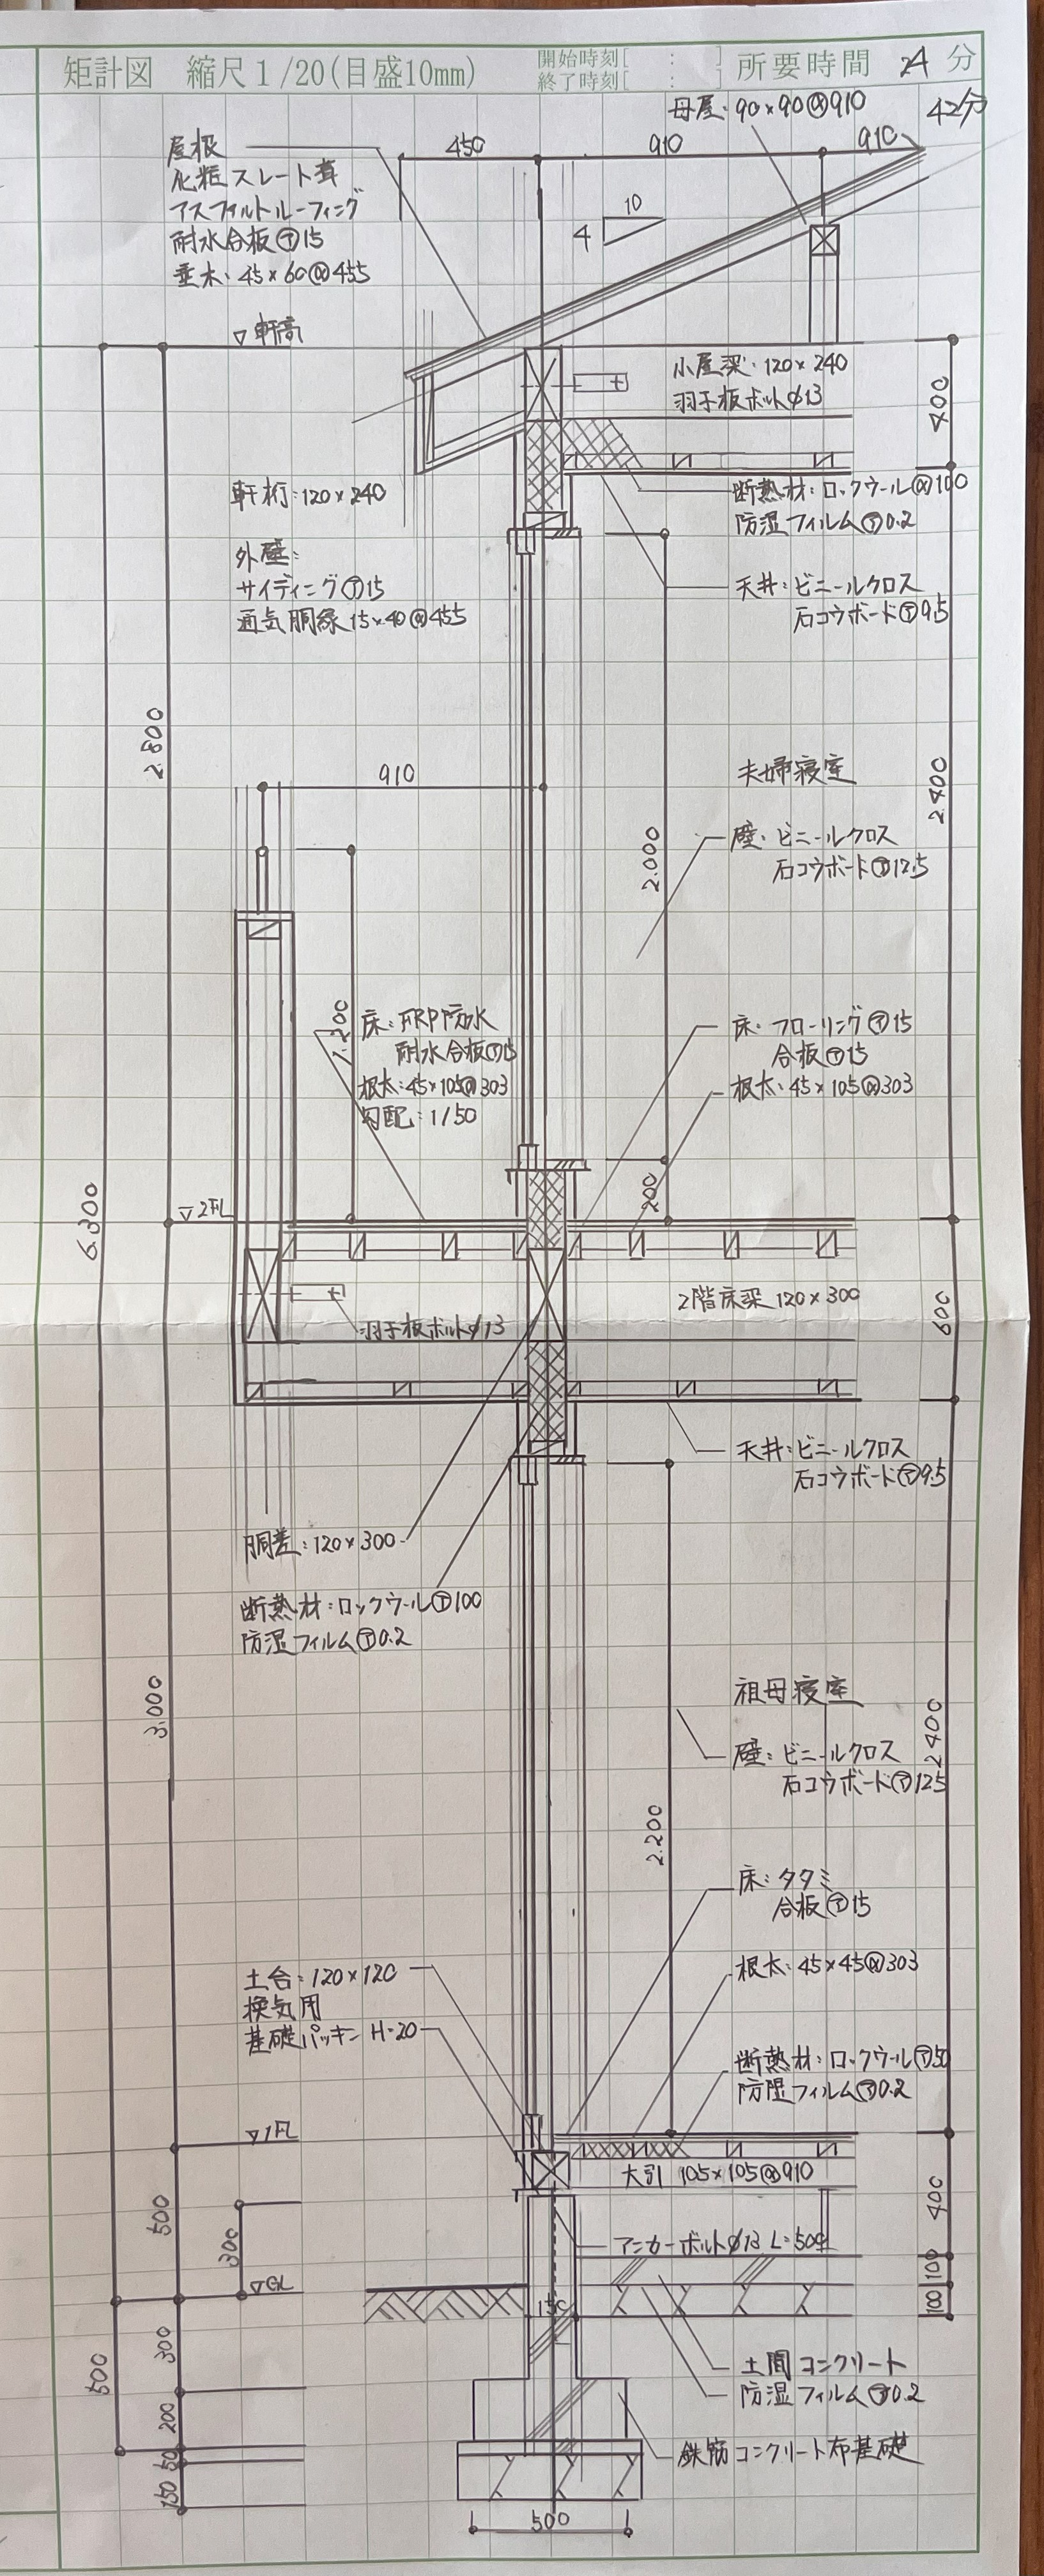 矩計図 縮尺1/20(目盛10mm)
開始時刻[ : ]
終了時刻[ : ]
所要時間 分
42分
母屋:90×90@910
屋根
化粧スレート葺
アスファルトルーフィング
耐水合板Ⓣ15
垂木:45×60@455
450
910
910
10
4
▽軒高
小屋梁:120×240
羽子板ボルトφ13
400
軒桁:120×240
断熱材:ロックウール@100
防湿フィルムⓉ0.2
外壁:
サイディングⓉ15
通気胴縁15×40@455
天井:ビニールクロス
石コウボードⓉ9.5
2.800
910
夫婦寝室
2.400
壁:ビニールクロス
石コウボードⓉ12.5
2.000
1.200
床:FRP防水
耐水合板Ⓣ15
根太:45×105@303
勾配:1/50
床:フローリングⓉ15
合板Ⓣ15
根太:45×105@303
200
6.300
▽2FL
2階床梁120×300
600
羽子板ボルトφ13
天井:ビニールクロス
石コウボードⓉ9.5
胴差:120×300
断熱材:ロックウールⓉ100
防湿フィルムⓉ0.2
3.000
祖母寝室
2400
壁:ビニールクロス
石コウボードⓉ12.5
2.200
床:タタミ
合板Ⓣ15
土台:120×120
換気用
基礎パッキン H=20
根太:45×45@303
断熱材:ロックウールⓉ50
防湿フィルムⓉ0.2
▽1FL
大引 105×105@910
500
300
400
アンカーボルトφ13 L=500
100
100
▽GL
150
300
500
土間コンクリート
防湿フィルムⓉ0.2
200
鉄筋コンクリート布基礎
50
150
500